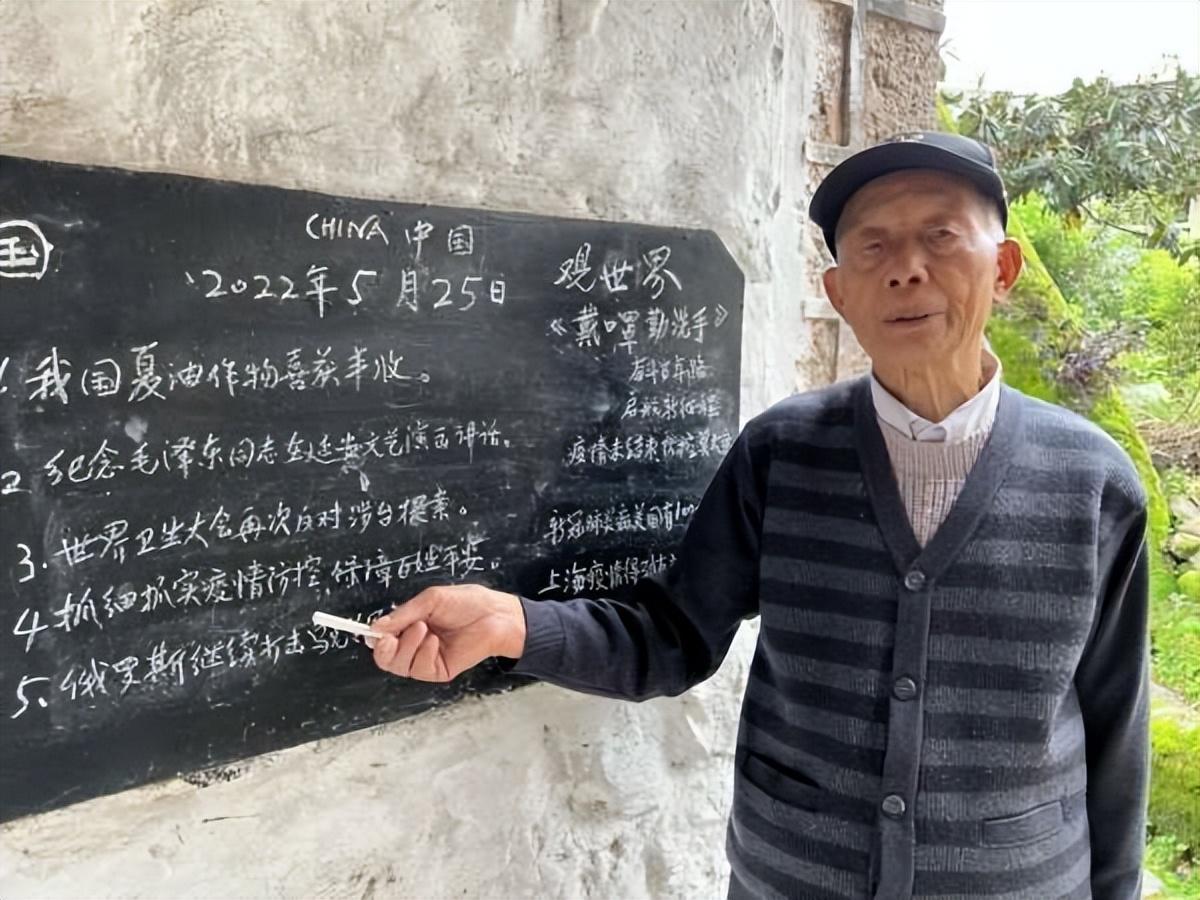 CHINA 中国
2022年5月25日
1 我国夏油作物喜获丰收。
2 纪念毛泽东同志在延安文艺演百讲话。
3. 世界卫生大会再次反对涉台提案。
4 抓细抓实疫情防控 保障百姓平安。
5. 俄罗斯继续打击乌克
观世界
《戴口罩勤洗手》
奋斗百年路
启航新征程
疫情未结束 防控莫
新冠肺炎病美国有100
上海疫情得到